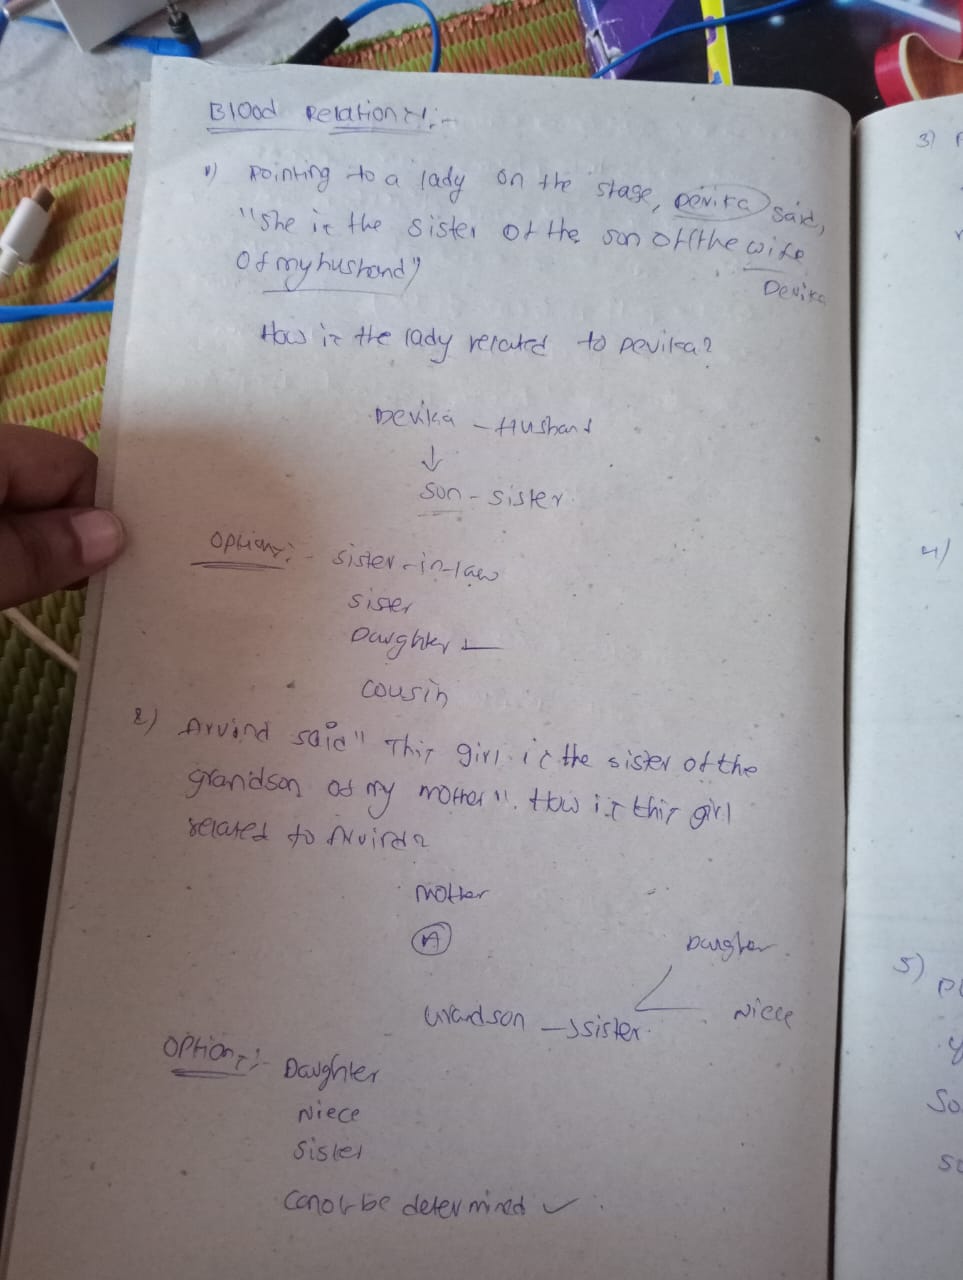 Blood Relations:-
1) Pointing to a lady on the stage, Devika said,
"she is the sister of the son of the wife
of my husband"
Devika
How is the lady related to Devika?
Devika - Husband
↓
son - sister
Options:- sister-in-law
sister
Daughter
cousin
2) Arvind said" This girl is the sister of the
grandson of my mother". How is this girl
related to Arvind?
mother
A
Daughter
Grandson → sister
Niece
Options:- Daughter
Niece
Sister
Canot be determined ✓
3)
4)
5)
So